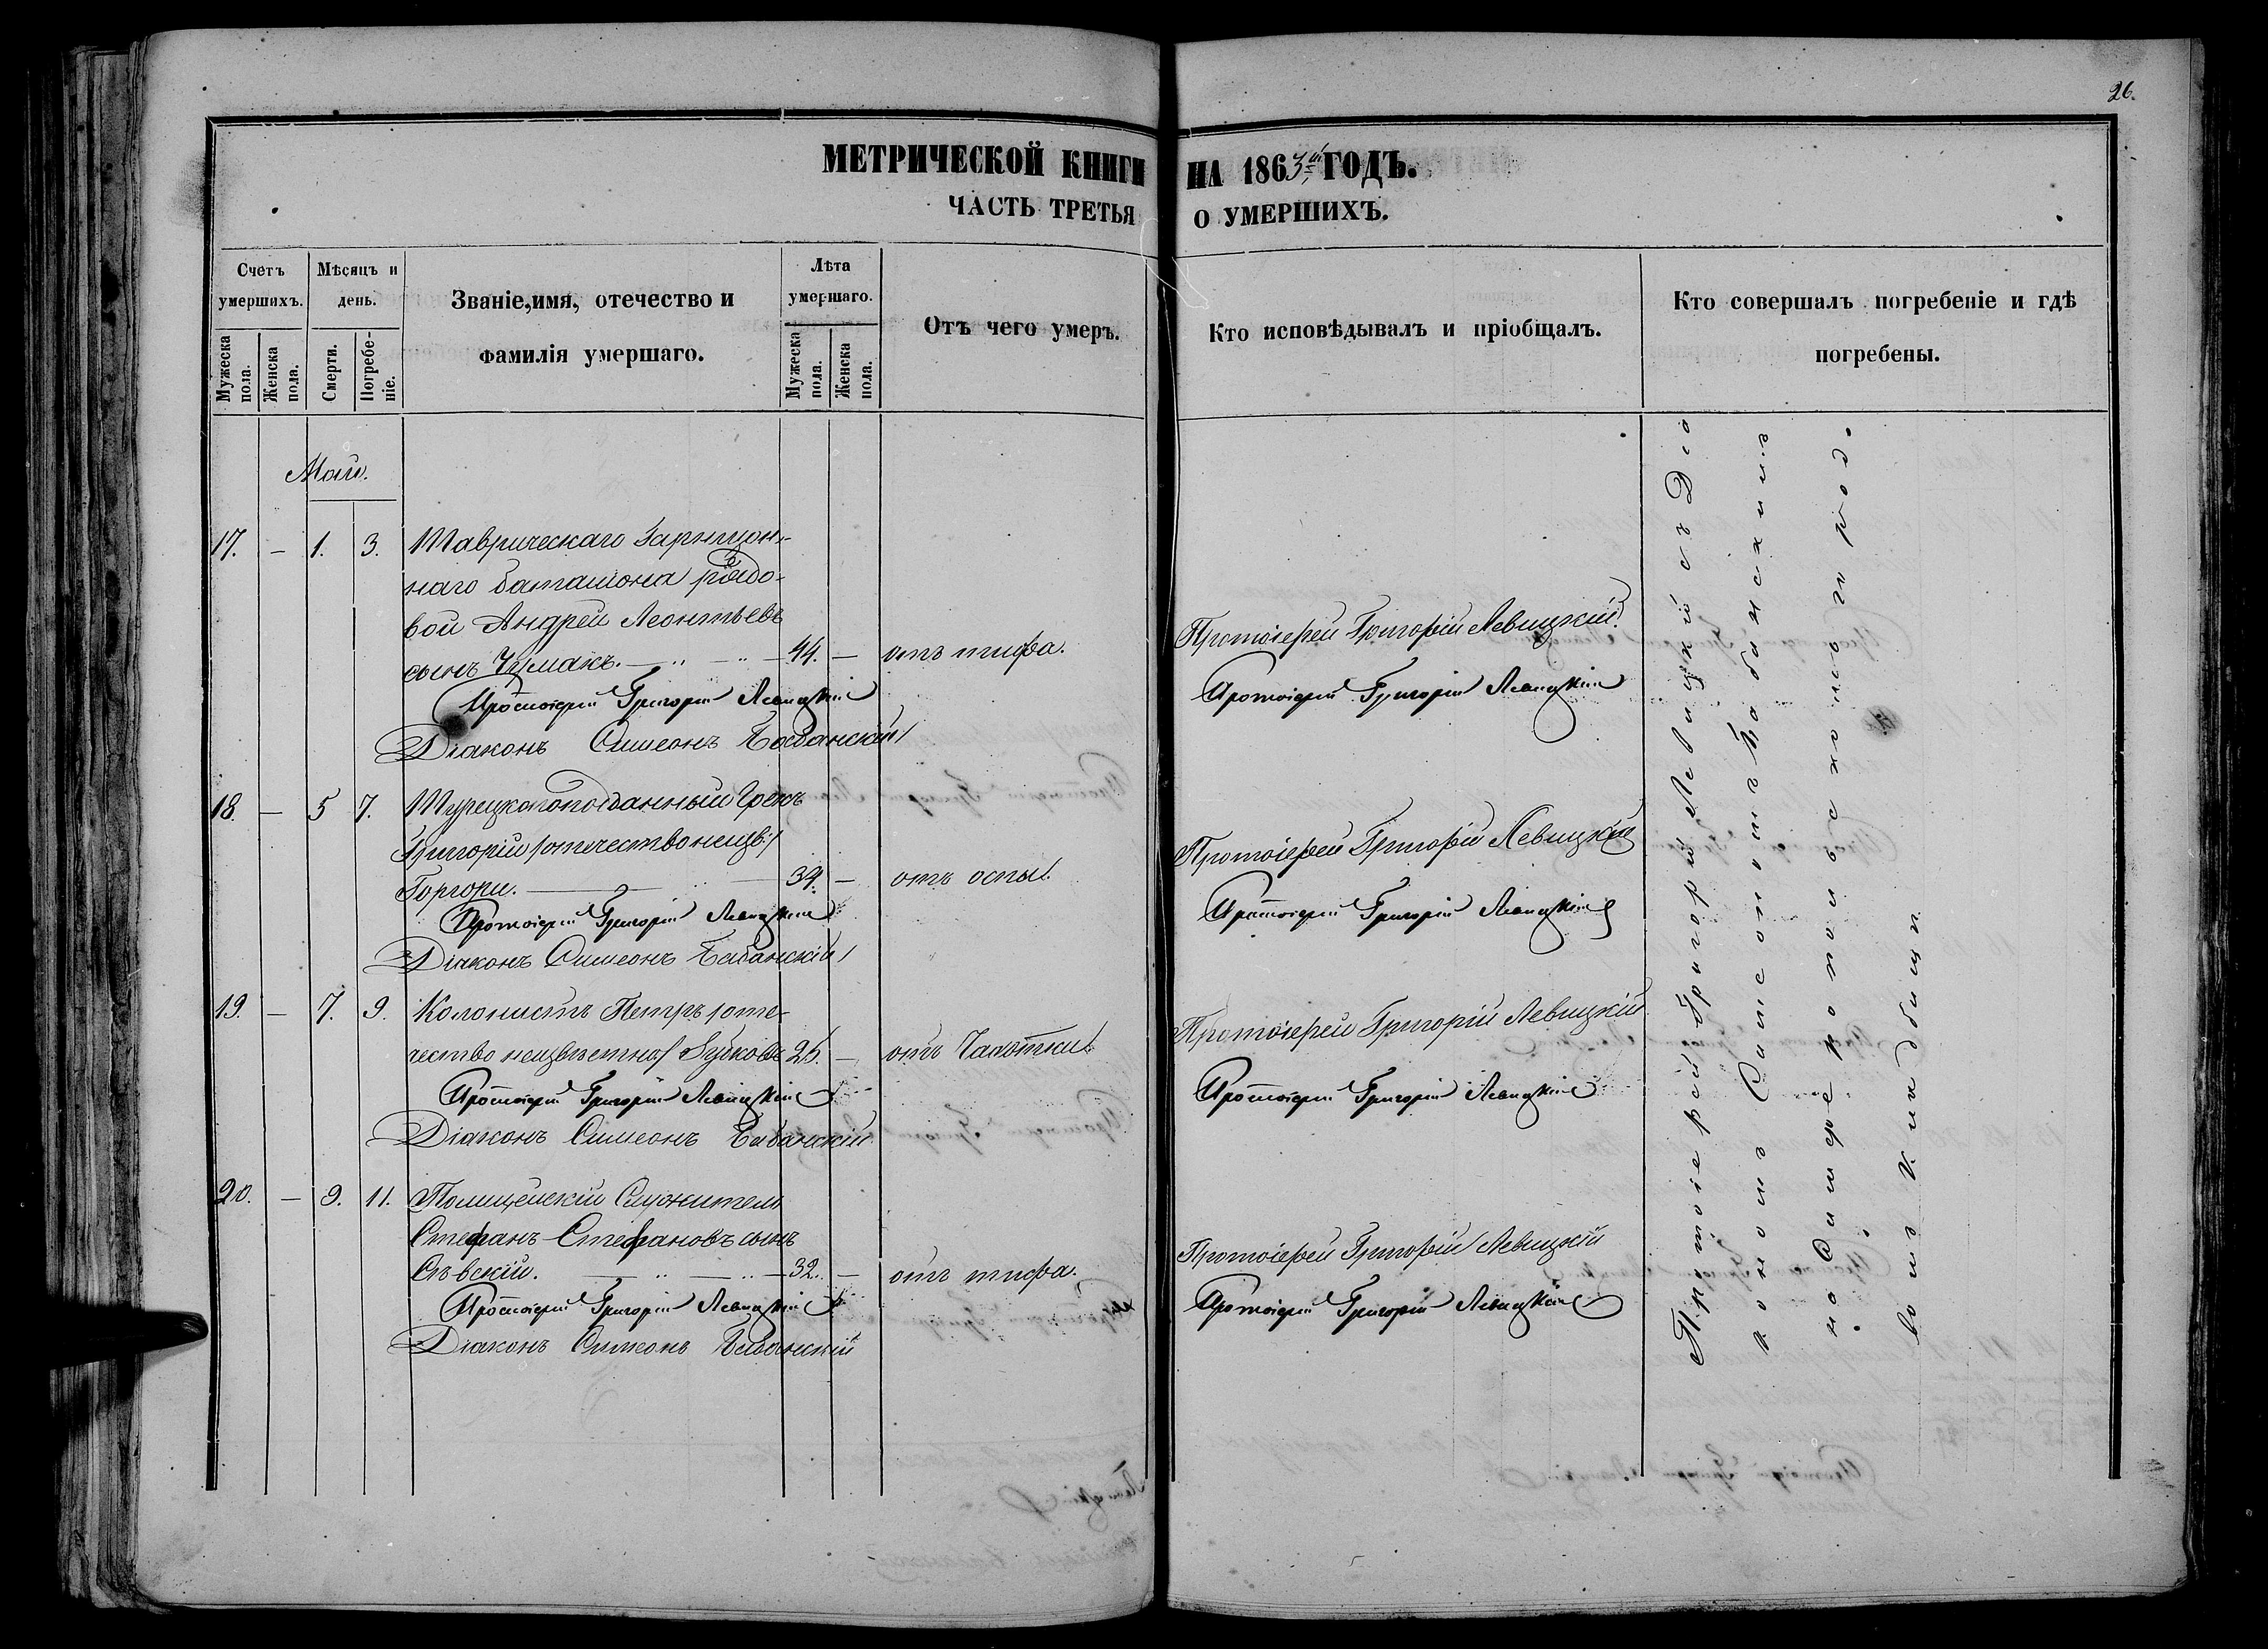 26.
МЕТРИЧЕСКОЙ КНИГИ НА 1863й ГОДЪ.
ЧАСТЬ ТРЕТЬЯ О УМЕРШИХЪ.
Счетъ умершихъ.
Мужеска пола.
Женска пола.
Мѣсяцъ и день.
Смерти.
Погребеніе.
Званіе, имя, отечество и
фамилія умершаго.
Лѣта умершаго.
Мужеска пола.
Женска пола.
Отъ чего умеръ.
Кто исповѣдывалъ и пріобщалъ.
Кто совершалъ погребеніе и гдѣ
погребены.
Май.
17. — 1. 3. Таврическаго Гарнизон-
наго баталіона рядо-
вой Андрей Леонтьевъ
сынъ Чумакъ. 44. — отъ тифа.
Протоіерей Григорій Левицкій
Діаконъ Симеонъ Бабанскій
Протоіерей Григорій Левицкій.
Протоіерей Григорій Левицкій
18. — 5 7. Турецкоподанный Грекъ
Григорій /отчество неизв:/
Горгори. 34. — отъ оспы.
Протоіерей Григорій Левицкій
Діаконъ Симеонъ Бабанскій
Протоіерей Григорій Левицкій
Протоіерей Григорій Левицкій
19. — 7. 9. Колонистъ Петръ /оте-
чество неизвѣстно/ 26. — отъ Чахотки.
Протоіерей Григорій Левицкій
Діаконъ Симеонъ Бабанскій
Протоіерей Григорій Левицкій
Протоіерей Григорій Левицкій
20. — 9. 11. Полицейскій Служитель
Стефанъ Стефановъ сынъ
Сѣвскій. 32. — отъ тифа.
Протоіерей Григорій Левицкій
Діаконъ Симеонъ Бабанскій
Протоіерей Григорій Левицкій
Протоіерей Григорій Левицкій
Протоіерей Григорій Левицкій съ Діа
кономъ Симеономъ Бабанскимъ
на Симферопольскомъ город.
вомъ Кладбищѣ.